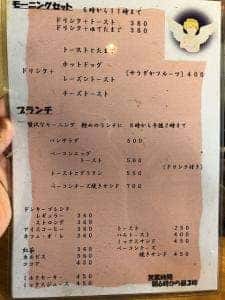 モーニングセット
6時から11時まで
ドリンク＋トースト 360
ドリンク＋ゆでたまご 360
トーストとたまご
ホットドッグ
ドリンク＋ (サラダかフルーツ) 400
レーズントースト
チーズトースト
ブランチ
贅沢なモーニング 軽めのランチに 8時から午後2時まで
パンサラダ 600
ベーコンエッグ
トースト 560
(ドリンク付き)
トーストとグラタン 550
ベーコンチーズ焼きサンド 700
ドンキーブレンド
レギュラー 340
ストロング 360
アイスコーヒー 360
カフェ・オ・レ 360
紅茶 340
カルピス 360
ココア 360
ミルクセーキ 450
ミックスジュース 450
トースト 250
ハムトースト 400
ミックスサンド 400
ベーコンチーズ
焼きサンド
営業時間